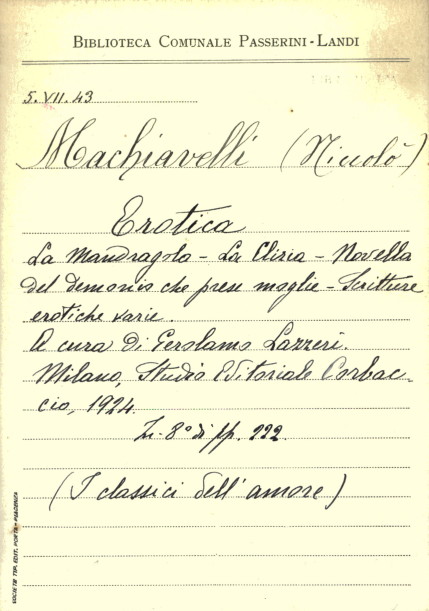 BIBLIOTECA COMUNALE PASSERINI-LANDI
5. VII. 43
Machiavelli (Niccolò)
Erotica
La Mandragola - La Clizia - Novella
del demonio che prese moglie - Scritture
erotiche varie.
A cura di Gerolamo Lazzeri.
Milano, Studio Editoriale Corbac-
cio, 1924.
In-8° di pp. 222.
(I classici dell'amore)
SOCIETÀ TIP. EDIT. PORTA - PIACENZA